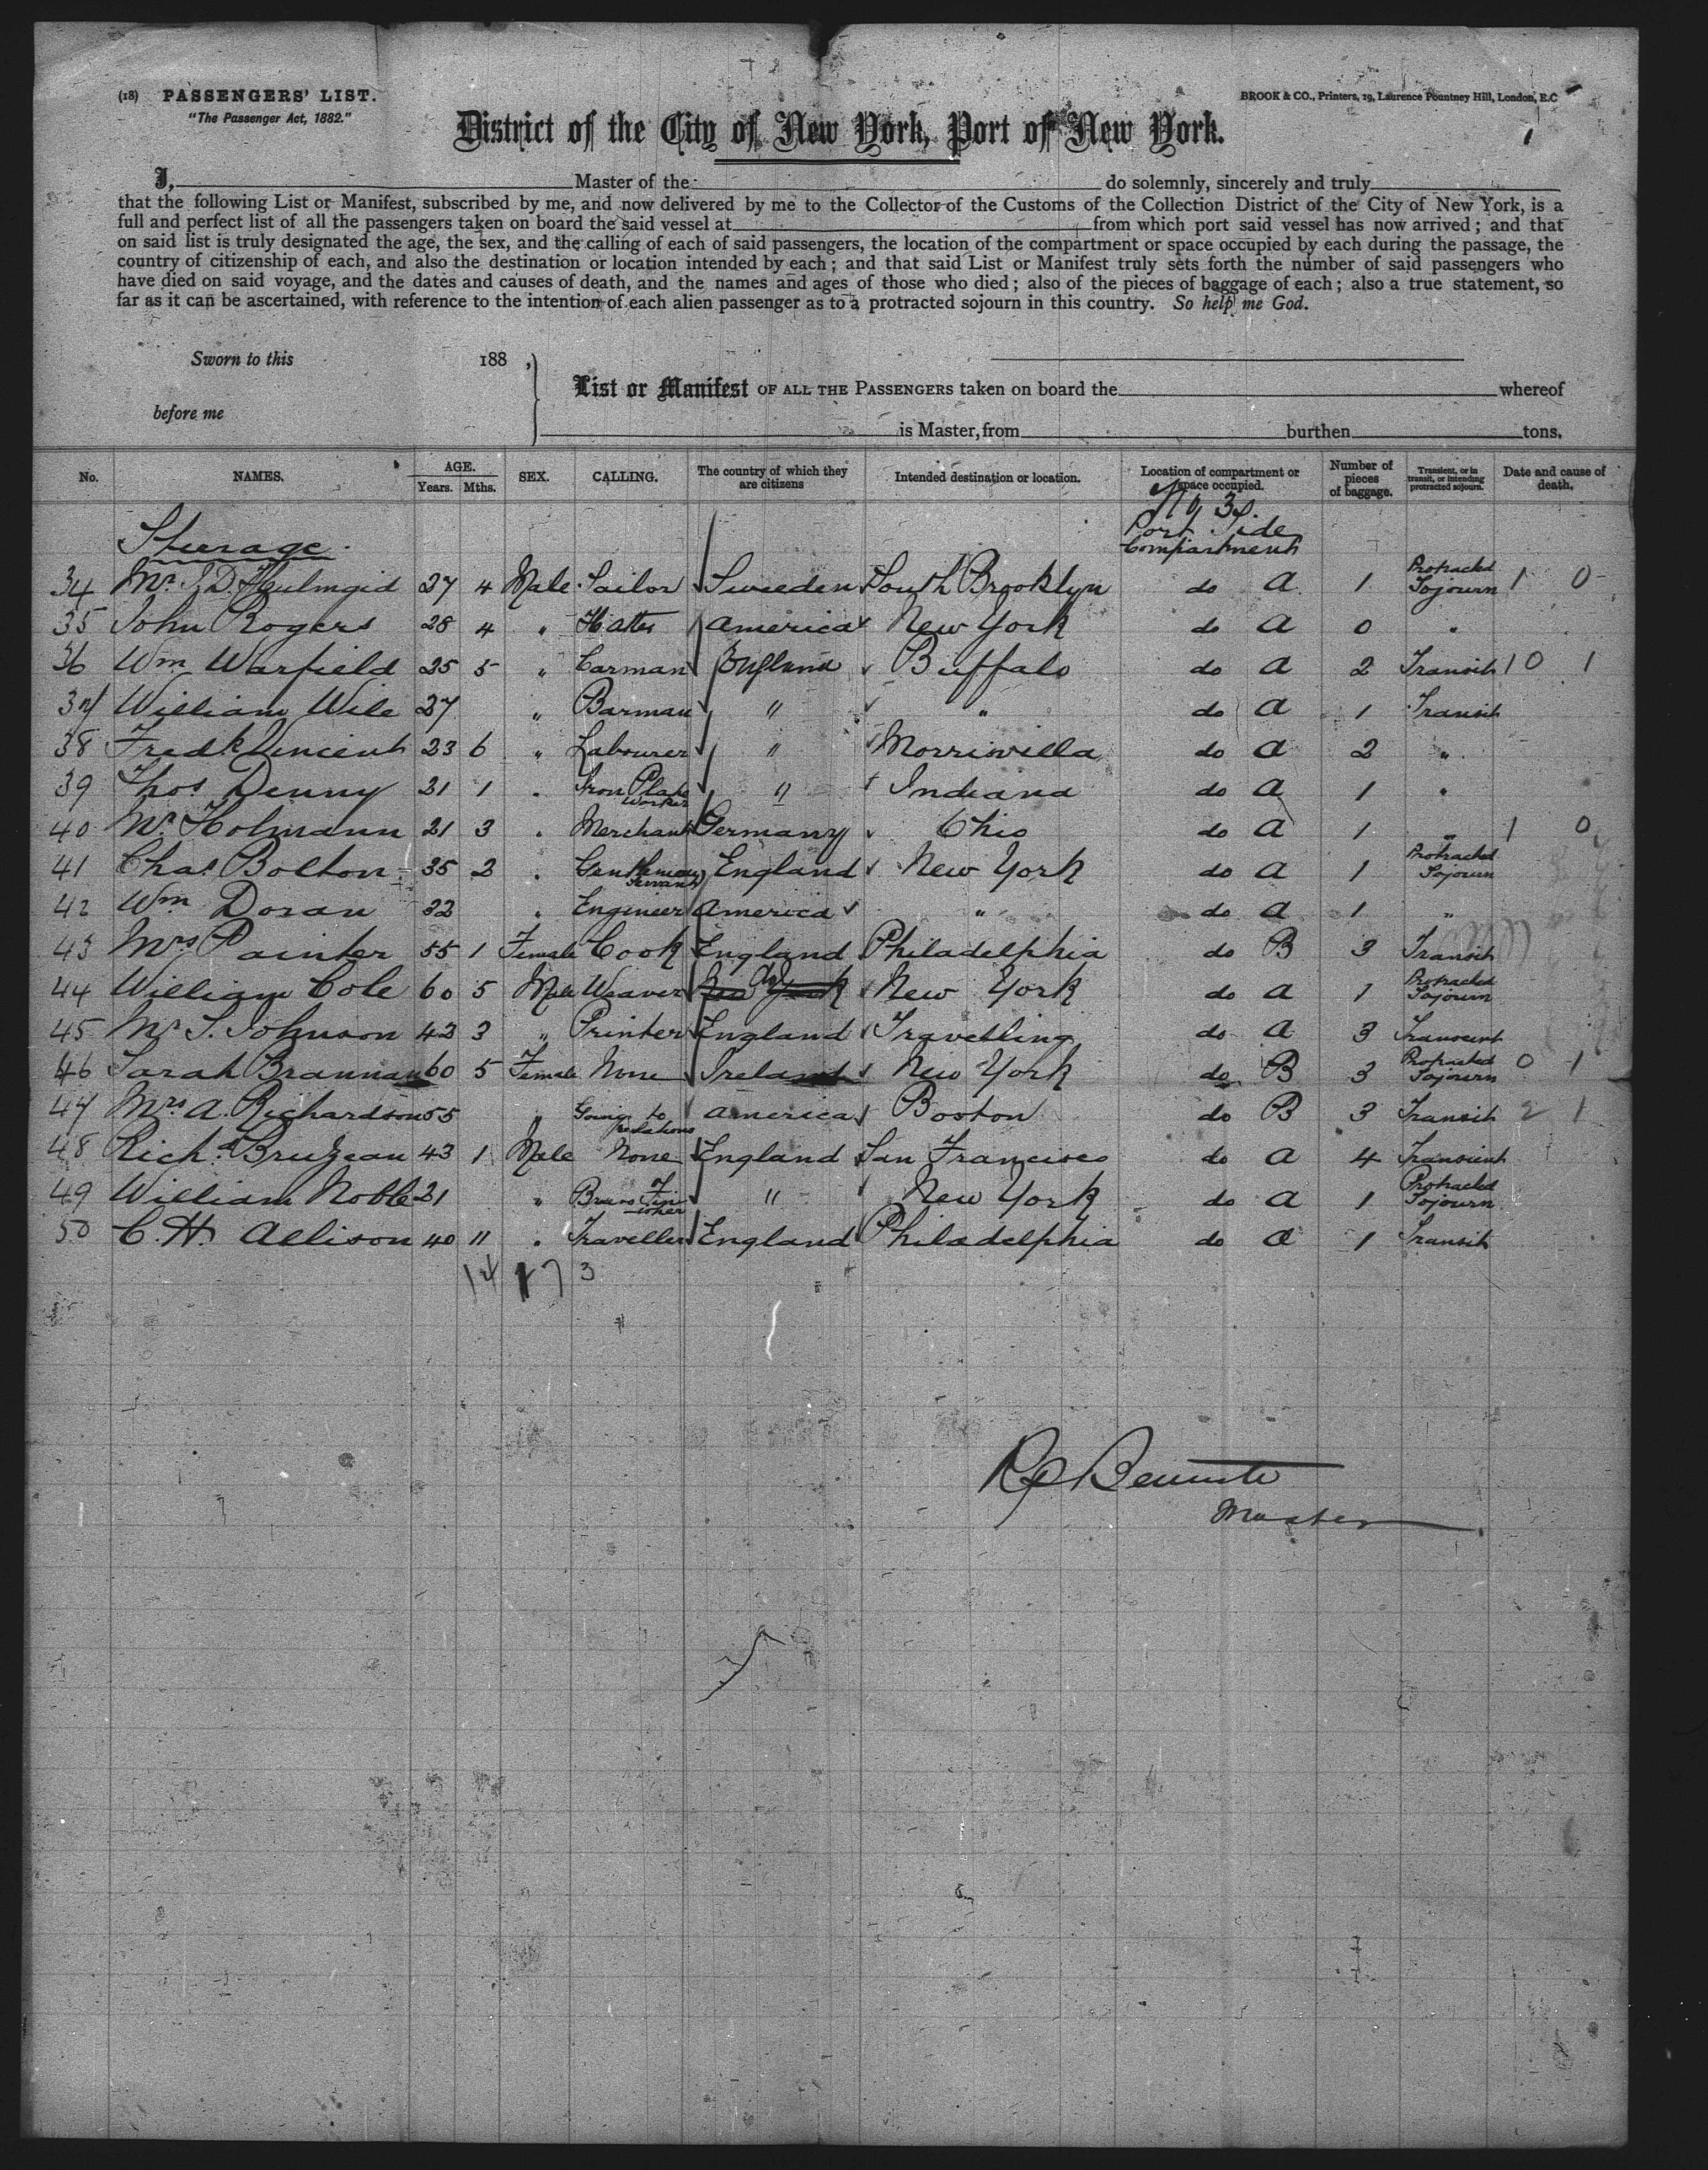 (18) PASSENGERS' LIST.
"The Passenger Act, 1882."
BROOK & CO., Printers, 19, Laurence Pountney Hill, London, E.C
District of the City of New York, Port of New York.
I, Master of the do solemnly, sincerely and truly
that the following List or Manifest, subscribed by me, and now delivered by me to the Collector of the Customs of the Collection District of the City of New York, is a
full and perfect list of all the passengers taken on board the said vessel at from which port said vessel has now arrived; and that
on said list is truly designated the age, the sex, and the calling of each of said passengers, the location of the compartment or space occupied by each during the passage, the
country of citizenship of each, and also the destination or location intended by each; and that said List or Manifest truly sets forth the number of said passengers who
have died on said voyage, and the dates and causes of death, and the names and ages of those who died; also of the pieces of baggage of each; also a true statement, so
far as it can be ascertained, with reference to the intention of each alien passenger as to a protracted sojourn in this country. So help me God.
Sworn to this 188 ,
List or Manifest OF ALL THE PASSENGERS taken on board the whereof
before me
is Master, from burthen tons.
No. NAMES. AGE. Years. Mths. SEX. CALLING. The country of which they are citizens Intended destination or location. Location of compartment or space occupied. Number of pieces of baggage. Transient, or in transit, or intending protracted sojourn. Date and cause of death.
No 3.
Port Side
Compartment
Steerage.
34 Mr. 27 4 Male Sailor Sweeden South Brooklyn do A 1 Protracted Sojourn 1 0
35 John Rogers 28 4 " Hatter America New York do A 0 "
36 Wm Warfield 25 5 " Carman England Buffalo do A 2 Transit 1 0 1
37 William Wile 27 " Barman " " do A 1 Transit
38 Fredk Vincent 23 6 " Labourer " Morrisvilla do A 2 "
39 Thos Denny 21 1 " Iron Plate Worker " Indiana do A 1 "
40 Mr Holmann 21 3 " Merchant Germany Ohio do A 1 " 1 0
41 Chas Bolton 35 2 " Gentlemans Servant England New York do A 1 Protracted Sojourn
42 Wm Doran 32 " Engineer America " do A 1 "
43 Mrs Painter 55 1 Female Cook England Philadelphia do B 3 Transit
44 William Cole 60 5 Male Weaver New York do A 1 Protracted Sojourn
45 Mr S. Johnson 42 3 " Printer England Travelling do A 3 Transient
46 Sarah Brannan 60 5 Female None Ireland New York do B 3 Protracted Sojourn 0 1
47 Mrs A. Richardson 55 " Going to relations America Boston do B 3 Transit 2 1
48 Richd Bruzeau 43 1 Male None England San Francisco do A 4 Transient
49 William Noble 21 " Brass Finisher " New York do A 1 Protracted Sojourn
50 C. H. Allison 40 11 " Traveller England Philadelphia do A 1 Transit
14 17 3
Master